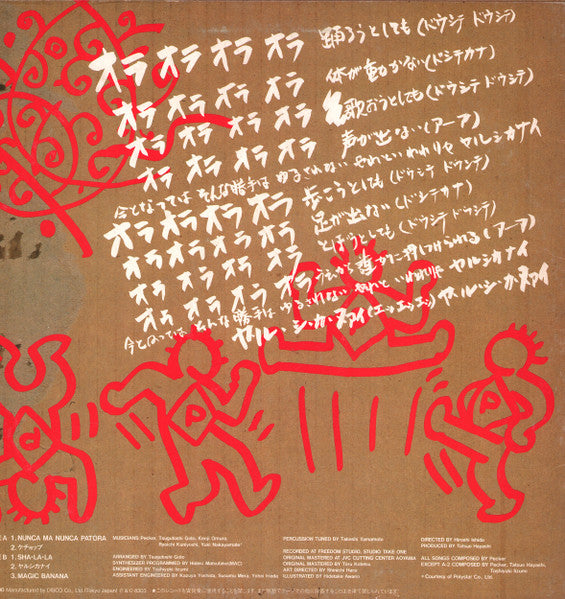 オラ オラ オラ オラ 踊ろうとしても(ドウシテ ドウシテ)
オラ オラ オラ オラ 体が動かない(ドシテカナ)
オラ オラ オラ オラ 歌おうとしても(ドウシテ ドウシテ)
オラ オラ オラ オラ 声が出ない(アーア)
今となっては そんな勝手は ゆるされない やれといわれりゃ ヤルシカナイ
オラ オラ オラ オラ 歩こうとしても(ドウシテ ドウシテ)
オラ オラ オラ オラ 足が出ない(ドシテカナ)
オラ オラ オラ オラ とぼうとしても(ドウシテ ドウシテ)
オラ オラ オラ オラ 押しつけられる(アーア)
今となっては そんな勝手は ゆるされない やれといわれりゃ ヤルシカナイ
ヤル・シ・カ・ナイ(エッエッエッ)ヤ・ル・シ・カ・ナイ
P
P
P
A 1. NUNCA MA NUNCA PATORA
2. ケチョップ
B 1. SHA-LA-LA
2. ヤルシカナイ
3. MAGIC BANANA
MUSICIANS Pecker, Tsugutoshi Goto, Kenji Omura
Reiichi Kuniyoshi, Yuki Nakayamate*
ARRANGED BY Tsugutoshi Goto
SYNTHESIZER PROGRAMMED BY Hideki Matsutake(MAC)
ENGINEERED BY Toshiyuki Izumi
ASSISTANT ENGINEERED BY Kazuya Yoshida, Susumu Mera, Yutaka Inada
PERCUSSION TUNED BY Takashi Yamamoto
RECORDED AT FREEDOM STUDIO, STUDIO TAKE ONE
ORIGINAL MASTERED AT JVC CUTTING CENTER AOYAMA
ORIGINAL MASTERED BY Toru Kotetsu
ART DIRECTED BY Shinichi Hara
ILLUSTRATED BY Hidetake Awano
DIRECTED BY Hiroshi Ishida
PRODUCED BY Tatsuo Hayashi
ALL SONGS COMPOSED BY Pecker
EXCEPT A-2 COMPOSED BY Pecker, Tatsuo Hayashi,
Toshiyuki Izumi
* Courtesy of Polystar Co., Ltd.
Manufactured by DISCO Co., Ltd.(Tokyo Japan)